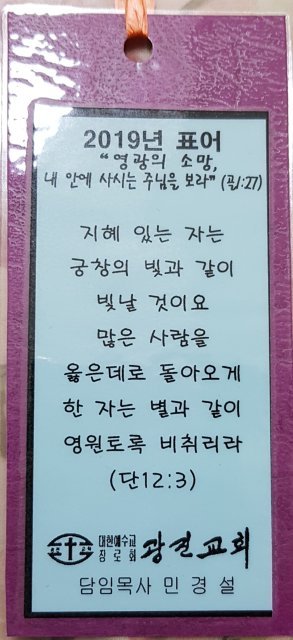 2019년 표어
“영광의 소망,
내 안에 사시는 주님을 보라” (골1:27)
지혜 있는 자는
궁창의 빛과 같이
빛날 것이요
많은 사람을
옳은데로 돌아오게
한 자는 별과 같이
영원토록 비취리라
(단12:3)
대한예수교
장로회 광진교회
담임목사 민경설